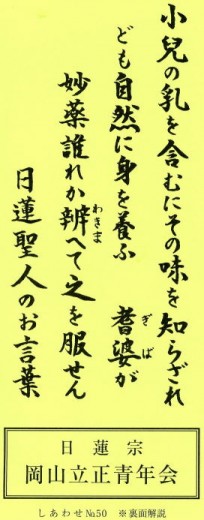 小兒の乳を含むにその味を知らざれ
ども自然に身を養ふ　耆婆が
ぎば
妙薬誰れか辨へて之を服せん
わきま
日蓮聖人のお言葉
日蓮宗
岡山立正青年会
しあわせ№50　※裏面解説